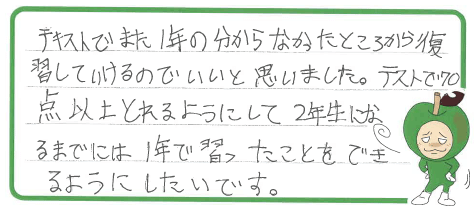 テキストでまた1年の分からなかったところから復
習していけるのでいいと思いました。テストで70
点以上とれるようにして2年生にな
るまでには1年で習ったことをでき
るようにしたいです。